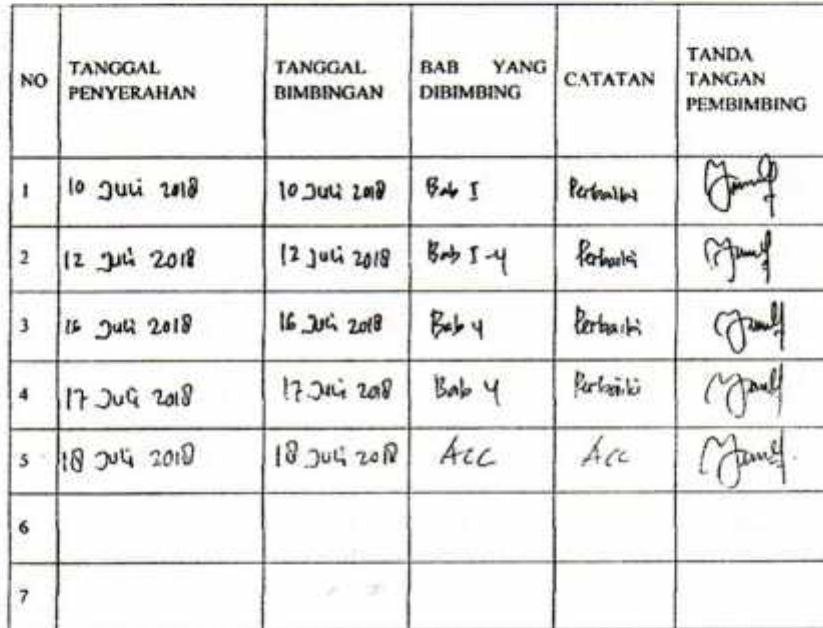 NO TANGGAL PENYERAHAN TANGGAL BIMBINGAN BAB YANG DIBIMBING CATATAN TANDA TANGAN PEMBIMBING
1 10 Juli 2018 10 Juli 2018 Bab I Perbaiki
2 12 Juli 2018 12 Juli 2018 Bab I-4 Perbaiki
3 16 Juli 2018 16 Juli 2018 Bab 4 Perbaiki
4 17 Juli 2018 17 Juli 2018 Bab 4 Perbaiki
5 18 Juli 2018 18 Juli 2018 Acc Acc
6
7